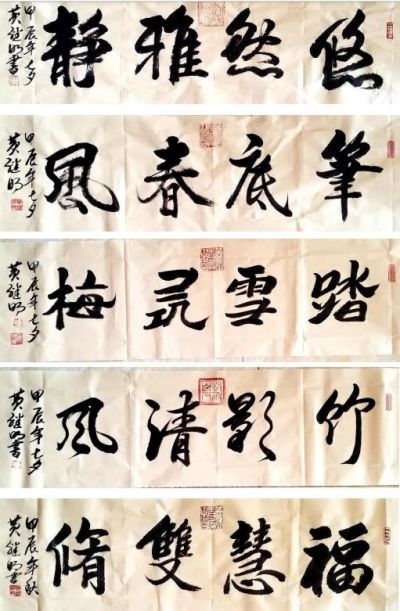 悠然雅静
甲辰年七夕
黄继明书
筆底春風
甲辰年七夕
黄继明
踏雪寻梅
甲辰年七夕
黄继明
竹影清风
甲辰年七夕
黄继明书
福慧雙脩
甲辰年秋
黄继明书